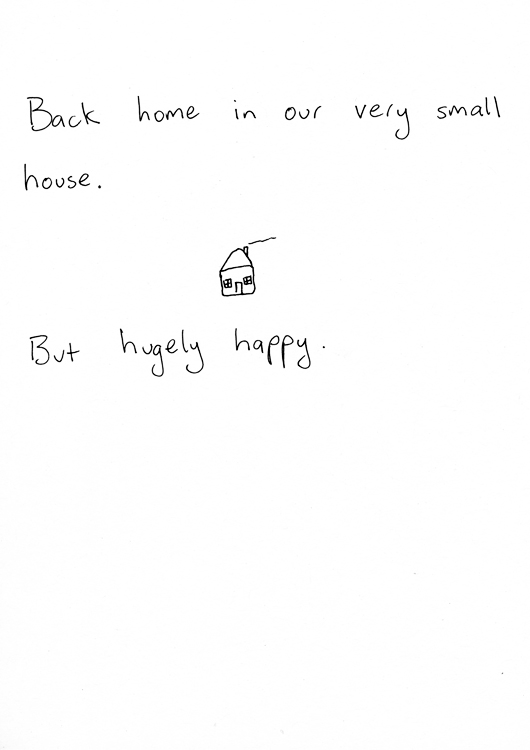 Back home in our very small
house.
But hugely happy.